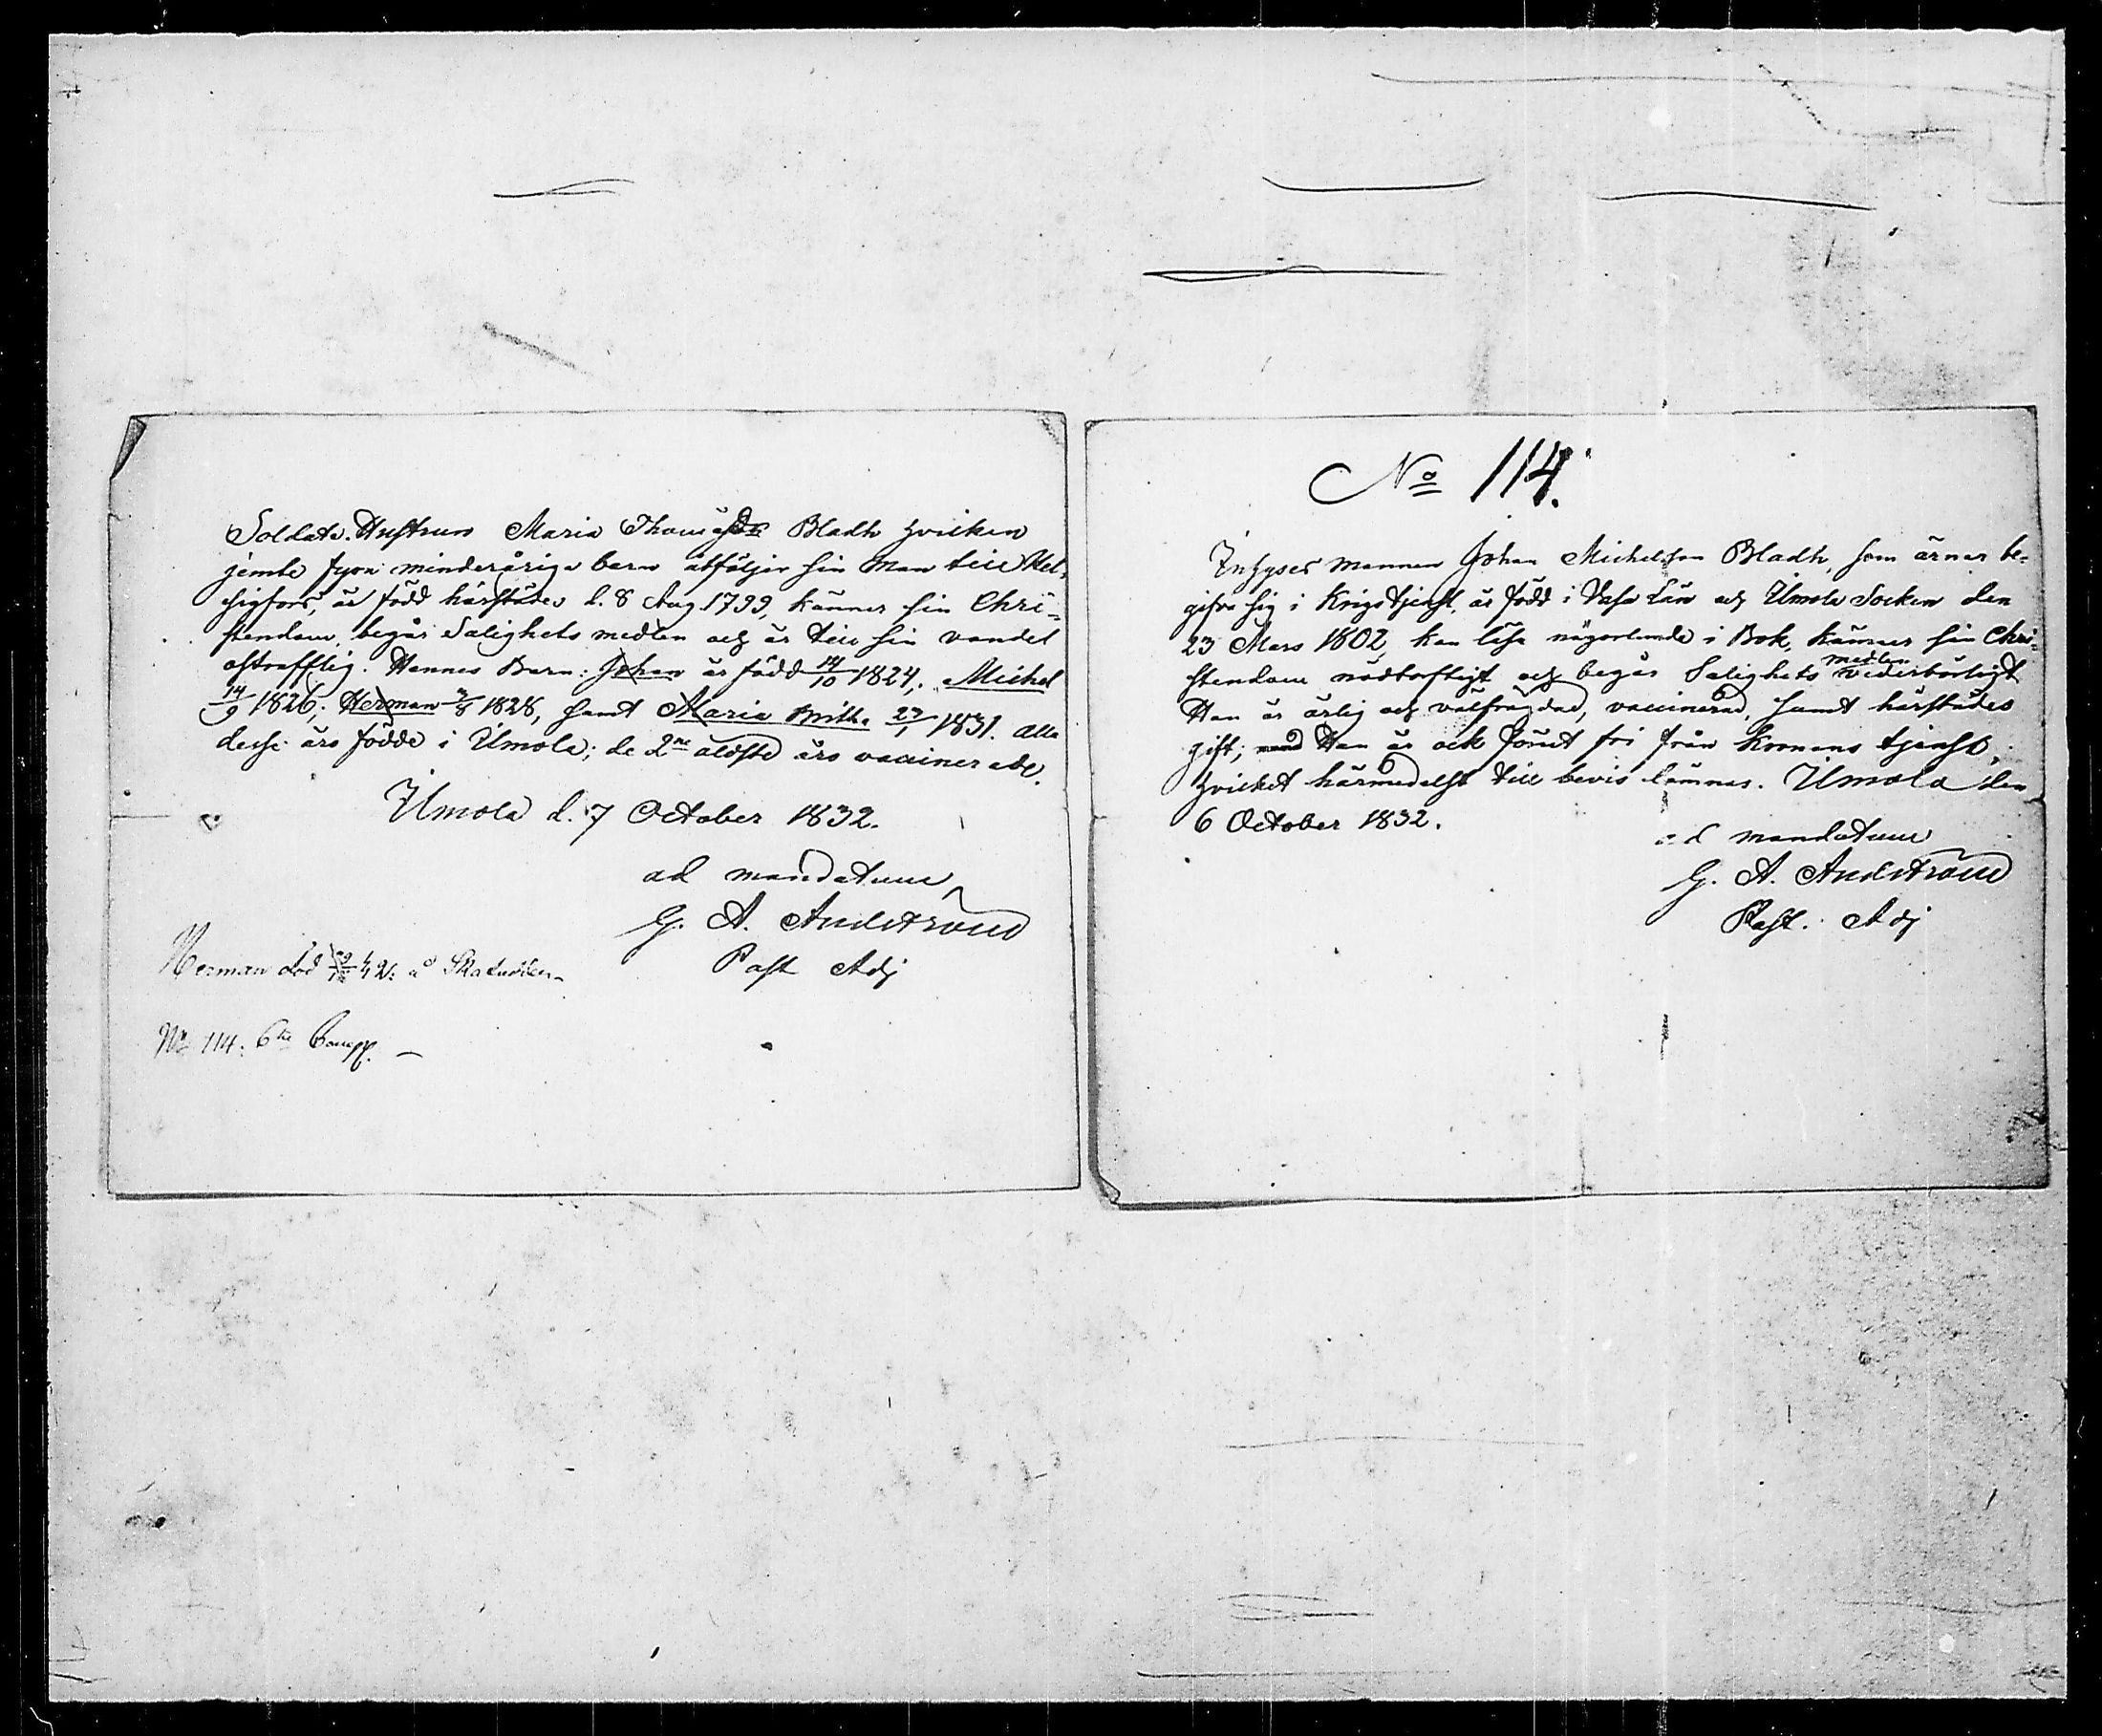 Soldats Hustrun Maria Thomäsdr Bladh hvilken
jemte fyra minderåriga barn åtföljer sin man till Hel-
singfors, är född härstädes d. 8 Aug. 1799, känner sin Chri-
stendom, begår Salighets medlen och är till sin vandel
ostrafflig. Hennes Barn: Johan är född 14/10 1824, Michel
14/9 1826, Herman 3/8 1828, samt Maria Wilh. 27/1 1831. Alla
desse äro födde i Ilmola; de 2ne äldste äro vaccinerade.
Ilmola d. 7 October 1832.
ad mandatum
G. A. Andström
Past Adj
Herman död 42 å Skatudden
No 114. 6te Comp.
No 114.
Inhyses mannen Johan Michelsson Bladh, som ärnar be-
gifva sig i Krigstjenst, är född i Vasa Län och Ilmola Socken den
23 Mars 1802, kan läsa någorlunda i Bok, känner sin Chri-
stendom nödtorftigt och begår Salighets medlen vederbörligt
Han är ärlig och välfrägdad, vaccinerad, samt härstädes
gift; Han är ock förut fri från Kronans tjenst,
hvilket härmedelst till bevis lämnas. Ilmola den
6 October 1832.
ad mandatum
G. A. Andström
Past. Adj